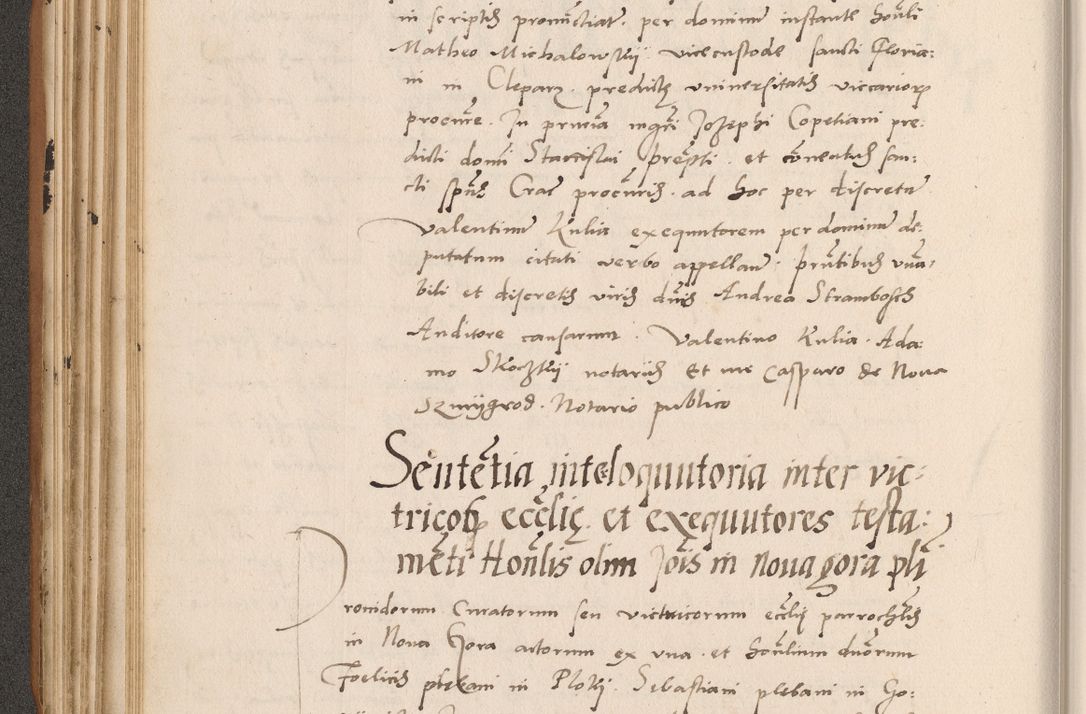 in scriptis pronūctiate. per dominum instante hon̄li
Matheo Michalowskij vicecustode sancti Floria:
ni in Cleparz. predictę vniuersitatis viccariorꝝ
procure. In pn̄cia mgr̄i Jozephi Copetiani pre:
dicti domi Stanislai prep̄ti. et conuentus san:
cti spūs Crac̄ procuris. ad hoc per discretū
Valentinum Kulia exequutorem per dominum de:
putatum citati verbo appellan̄. pn̄tibus vnā:
bili et discretis viris dn̄is Andrea Strambosch
Auditore causarum. Valentino Kulia. Ada:
mo Skoczkij notariis Et me Casparo de Noua
Szmijgrod. Notario publico
Sentētia inteloquutoria inter vic:
tricoꝝ ecc̄lię. et exequutores testa:
mēti Hon̄lis olim Joīs in noua gora pli
Prouidorum Curatorum seu victricorum ecc̄lię parrochlis
in Noua Gora actorum ex vna. et hon̄lium duorum
Foelicis plebani in Plokij. Sebastiani plebani in Go: